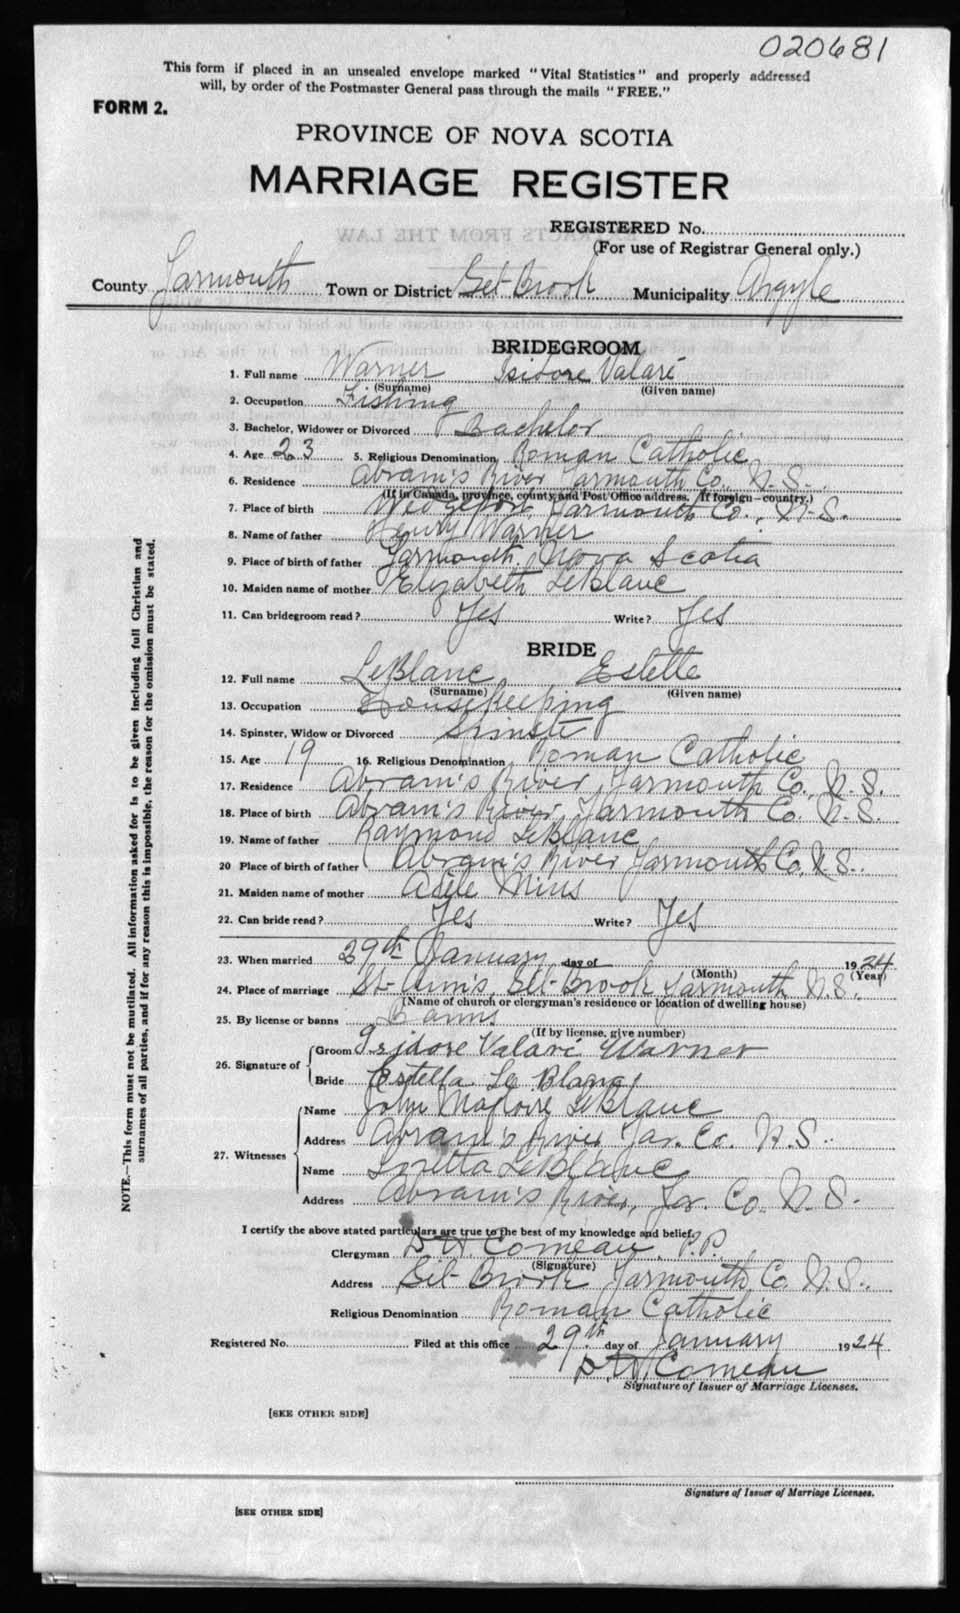 020681
This form if placed in an unsealed envelope marked "Vital Statistics" and properly addressed
will, by order of the Postmaster General pass through the mails "FREE."
FORM 2.
PROVINCE OF NOVA SCOTIA
MARRIAGE REGISTER
REGISTERED No.
(For use of Registrar General only.)
County Yarmouth Town or District Eel-Brook Municipality Argyle
BRIDEGROOM
1. Full name Warner Isidore Valaré
(Surname) (Given name)
2. Occupation Fishing
3. Bachelor, Widower or Divorced Bachelor
4. Age 23 5. Religious Denomination Roman Catholic
6. Residence Abram's River Yarmouth Co., N.S.
(If in Canada, province, county and Post Office address. If foreign—country.)
7. Place of birth Wedgeport, Yarmouth Co., N.S.
8. Name of father Henry Warner
9. Place of birth of father Yarmouth, Nova Scotia
10. Maiden name of mother Elizabeth LeBlanc
11. Can bridegroom read? Yes Write? Yes
BRIDE
12. Full name LeBlanc Estelle
(Surname) (Given name)
13. Occupation Housekeeping
14. Spinster, Widow or Divorced
15. Age 19 16. Religious Denomination Roman Catholic
17. Residence Abram's River, Yarmouth Co., N.S.
18. Place of birth Abram's River, Yarmouth Co. N.S.
19. Name of father Raymond LeBlanc
20 Place of birth of father Abram's River Yarmouth Co. N.S.
21. Maiden name of mother Mius
22. Can bride read? Yes Write? Yes
23. When married 29th January day of 1924
(Month) (Year)
24. Place of marriage St-Ann's, Eel-Brook Yarmouth N.S.
(Name of church or clergyman's residence or location of dwelling house)
25. By license or banns Banns
(If by license, give number)
26. Signature of Groom Isidore Valaré Warner
Bride Estella Le Blanc
27. Witnesses Name John Magloire LeBlanc
Address Abram's River Yar. Co. N.S.
Name Loretta LeBlanc
Address Abram's River, Yar. Co. N.S.
I certify the above stated particulars are true to the best of my knowledge and belief.
Clergyman Comeau, P.P.
(Signature)
Address Eel-Brook Yarmouth Co. N.S.
Religious Denomination Roman Catholic
Registered No. Filed at this office 29th day of January 1924
Comeau
Signature of Issuer of Marriage Licenses.
[SEE OTHER SIDE]
Signature of Issuer of Marriage Licenses.
[SEE OTHER SIDE]
NOTE.—This form must not be mutilated. All information asked for is to be given including full Christian and
surnames of all parties, and if for any reason this is impossible, the reason for the omission must be stated.